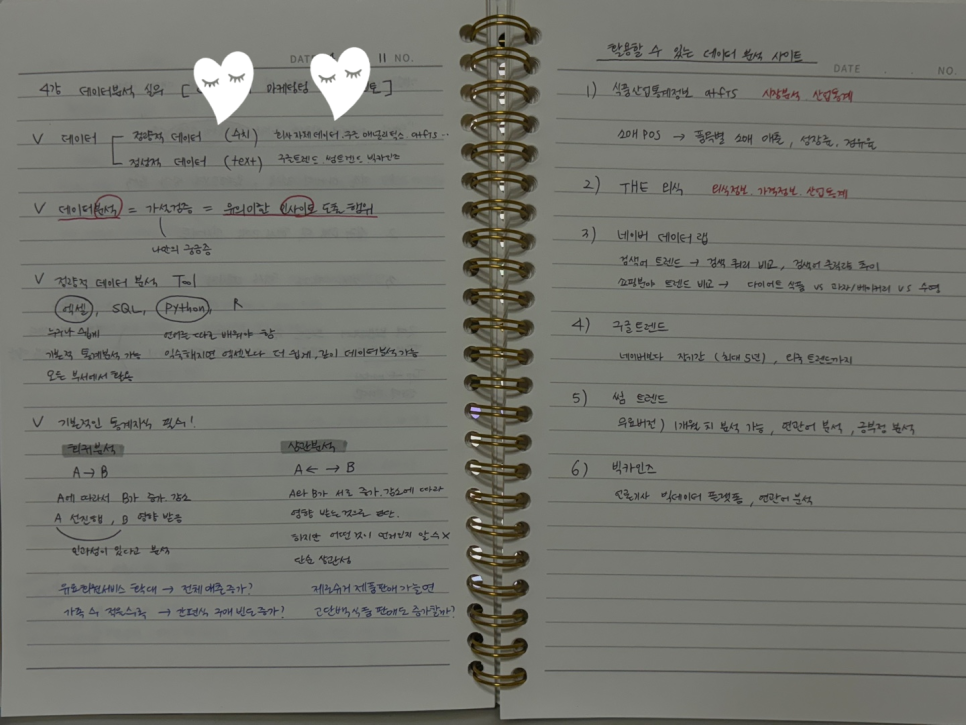 DATE 11 NO.
4강 데이터분석 실무 [ 마케팅팀 ]
V 데이터 정량적 데이터 (수치) 회사자체데이터, 구글 애널리틱스, atFIS ..
정성적 데이터 (text) 구글트렌드 썸트렌드 빅카인즈
V 데이터분석 = 가설검증 = 유의미한 인사이트 도출 행위
나만의 궁금증
V 정량적 데이터 분석 Tool
엑셀, SQL, Python, R
누구나 쉽게 언어는 따로 배워야 함
기본적 통계분석 가능 익숙해지면 엑셀보다 더 쉽게, 깊이 데이터분석 가능
모든 부서에서 활용
V 기본적인 통계지식 필수!
회귀분석
A → B
A에 따라서 B가 증가, 감소
A 선진행, B 영향 받음
인과성이 있다고 분석
유료회원서비스 확대 → 전체 매출증가?
가족 수 적을수록 → 간편식 구매 빈도 증가?
상관분석
A ← → B
A와 B가 서로 증가, 감소에 따라
영향 받는 것으로 판단.
하지만 어떤 것이 먼저인지 알 수 X
단순 상관성
제로슈거 제품판매 가능면
고단백식품 판매도 증가할까?
활용할 수 있는 데이터 분석 사이트
DATE . . NO.
1) 식품산업통계정보 atFIS 시장분석 산업통계
소매 POS → 품목별 소매 매출, 성장률, 점유율
2) THE 외식 외식정보 가격정보 산업통계
3) 네이버 데이터 랩
검색어 트렌드 → 검색 쿼리 비교, 검색어 추이
쇼핑분야 트렌드 비교 → 다이어트 식품 vs 과자/베이커리 vs
4) 구글트렌드
네이버보다 장기간 (최대 5년), 외국 트렌드까지
5) 썸 트렌드
유료버전) 1개월 치 분석 가능, 연관어 분석, 긍부정 분석
6) 빅카인즈
언론기사 빅데이터 플랫폼, 연관어 분석